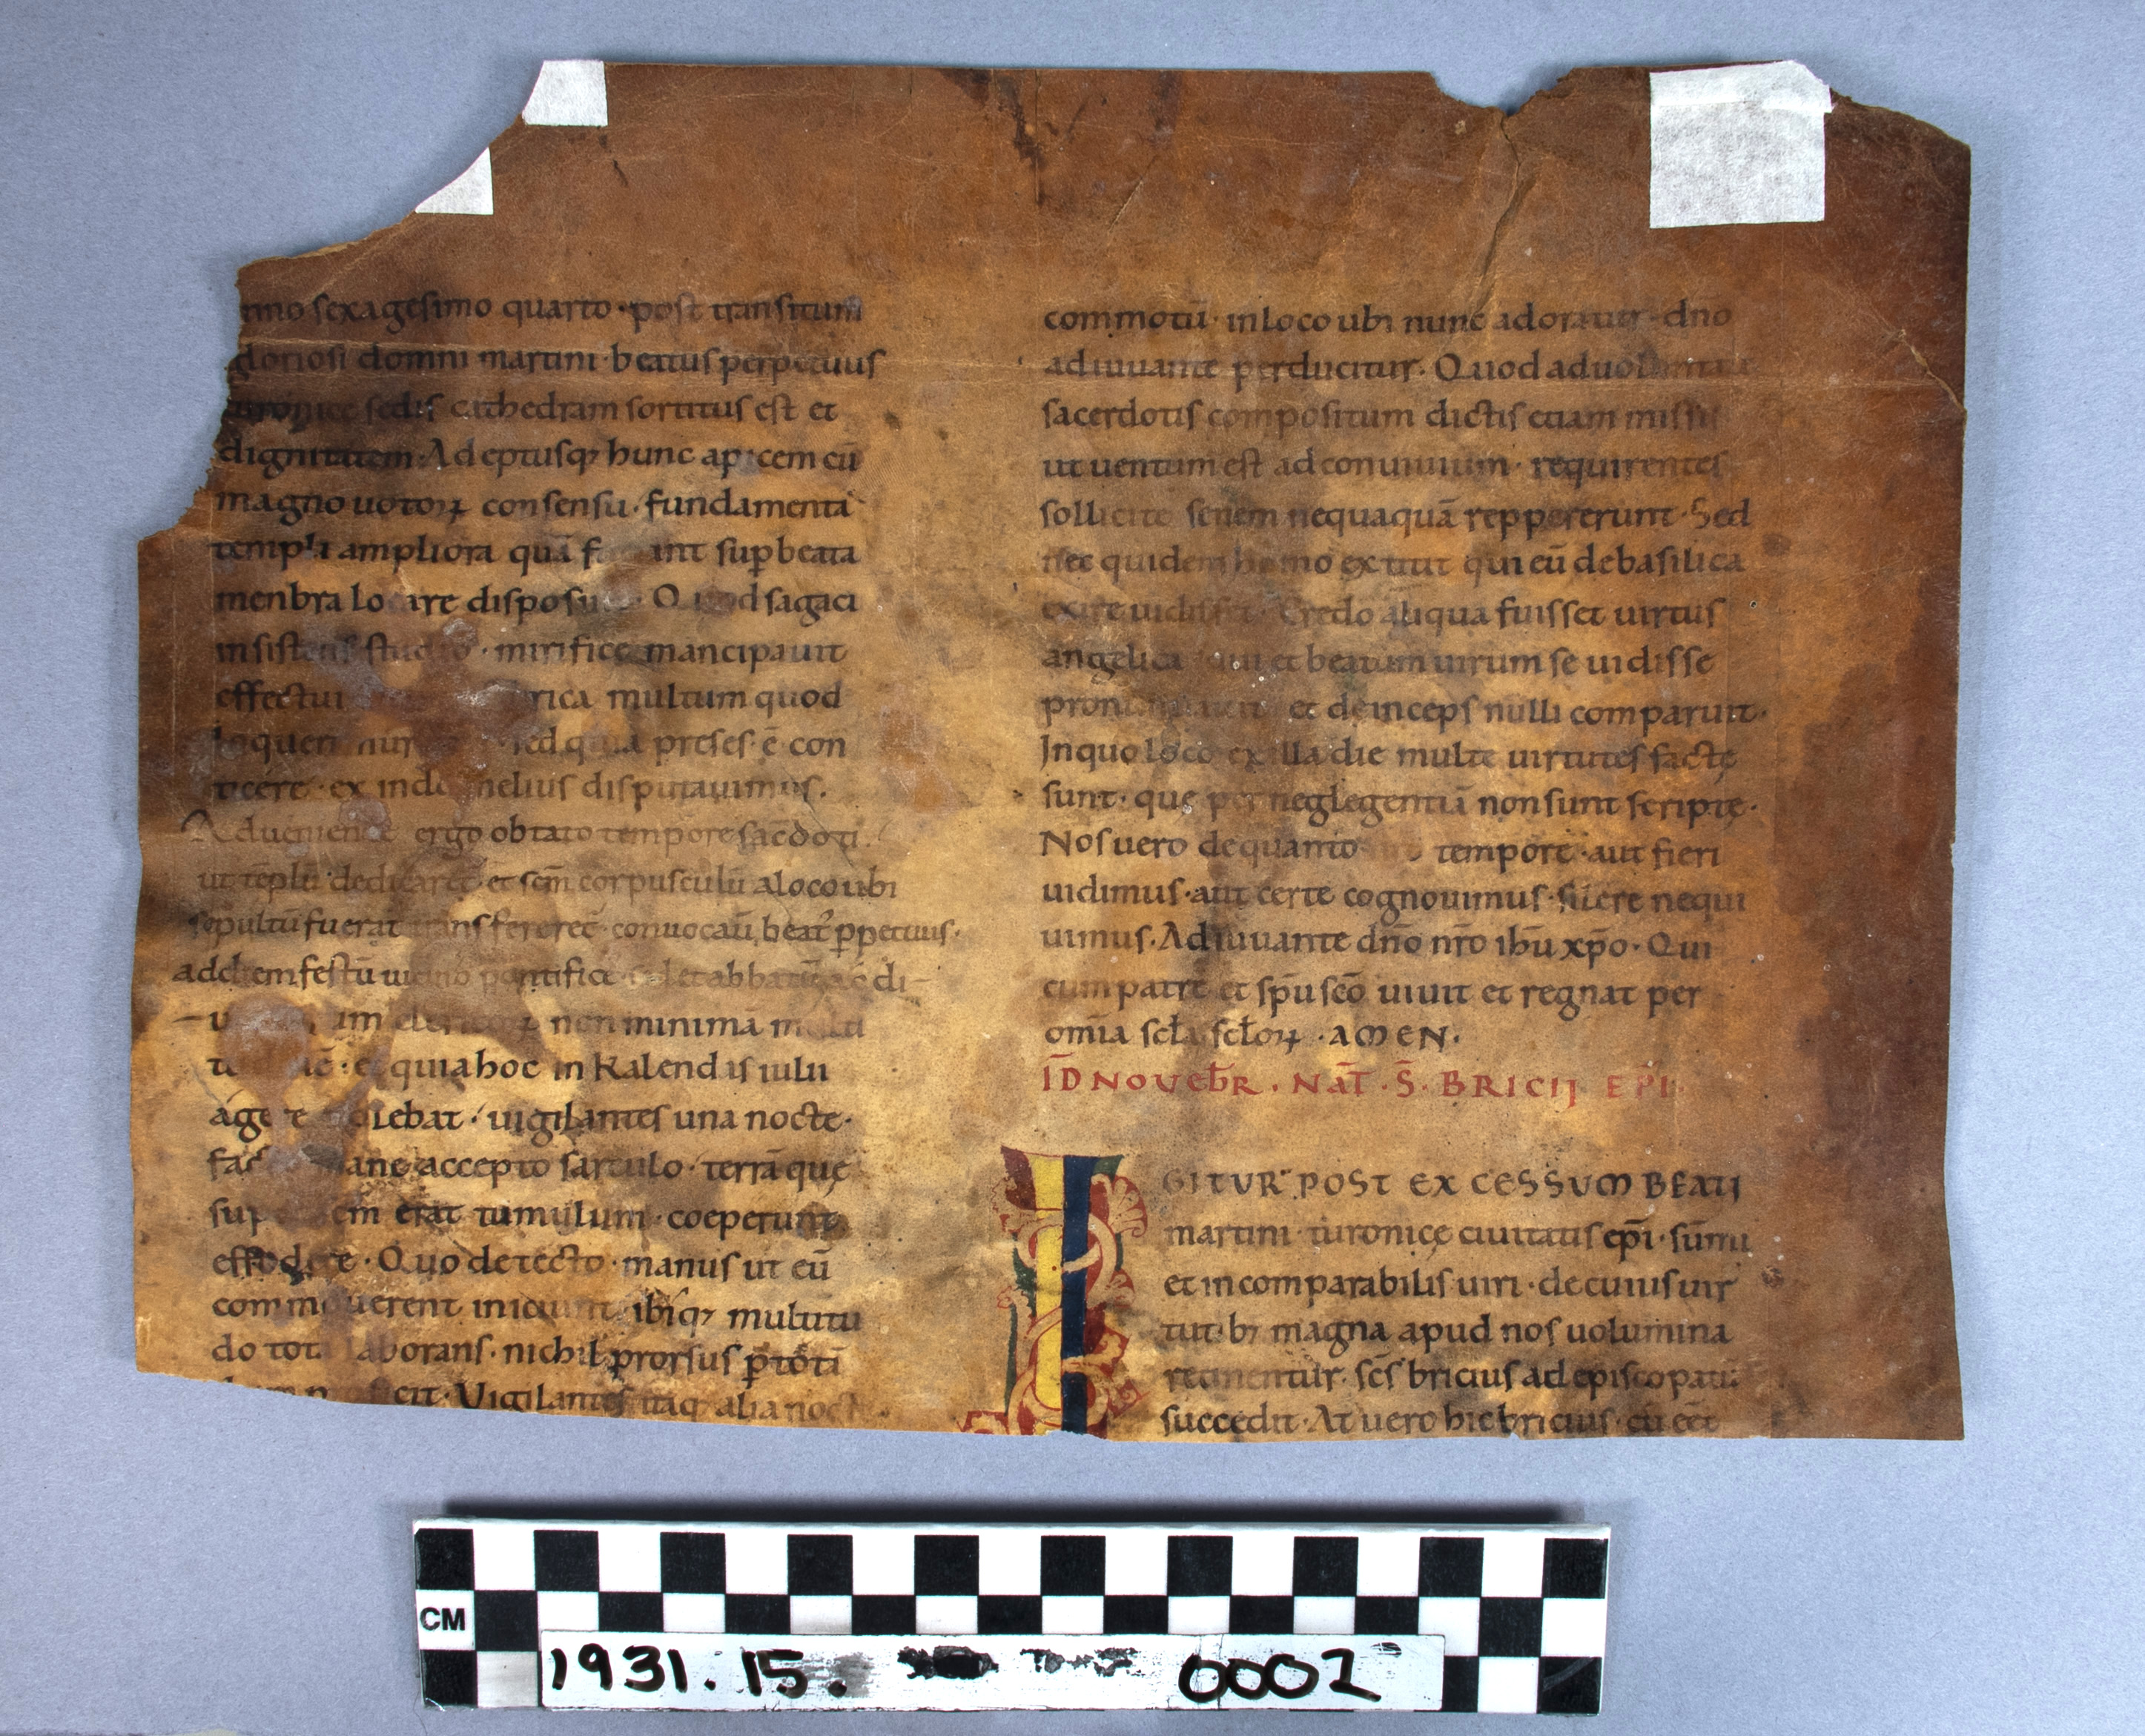 sexagesimo quarto · post transitum
gloriosi domni martini · beatus perpetuus
sedis cathedram sortitus est et
dignitatem · Adeptusq; hunc apicem cū
magno uotoꝝ consensu · fundamenta
templi ampliora quā int suꝑ beata
menbra disposuit · Quod sagaci
insistens studio · mirifice mancipauit
effectui multum quod
sed quia preses · ē · con
ticere · ex inde melius disputauimus ·
Adueniente ergo obtato tempore sac̄doti
ut tēplū dedicaret · et sc̄m corpusculū a loco ubi
sepultū fuerat transfereret · conuocauī beat᾽ ꝑpetuus ·
ad diem festū pontifices et abbatū ac di
clericoꝝ non minimā
quia hoc in Kalendis iulii
agere uolebat · uigilantes una nocte ·
accepto sarculo · terrā quę
erat tumulum · coeperunt
effodere · Quo detecto · manus ut eū
commouerent iniciunt · ibiq; multitu
do tota laborans · nichil prorsus ꝑ totā
Vigilantes itaq; alia nocte
commotū · in loco ubi nunc adoratur · dn̄o
adiuuante perducitur · Quod ad uoluntatē
sacerdotis compositum dictis etiam missis
ut uentum est ad conuiuium · requirentes
sollicite senem nequaquā reppererunt · Sed
nec quidem homo extitit qui eū de basilica
exire uidisset · Credo aliqua fuisset uirtus
angelica qui et beatum uirum se uidisse
pronuntiauit et deinceps nulli comparuit ·
In quo loco ex illa die multe uirtutes factę
sunt · quę per neglegentiā non sunt scriptę ·
Nos uero de quanto tempore · aut fieri
uidimus · aut certe cognouimus · silere nequi
uimus · Adiuuante dn̄o nr̄o ihū xp̄o · Qui
cum patre et sp̄u sc̄o uiuit et regnat per
omīa scl̄a scl̄oꝝ · AMEN ·
ID NOUEƀR · NAT̄ · S̄ · BRICII EPI ·
IGITUR POST EXCESSUM BEATI
martini · turonicę ciuitatis ep̄i · sūmi
et incomparabilis uiri · de cuius uir
tutib; magna apud nos uolumina
retinentur · sc̄s bricius ad episcopatū
succedit · At uero hic bricius · cū eēt
CM
1931.15. 0002